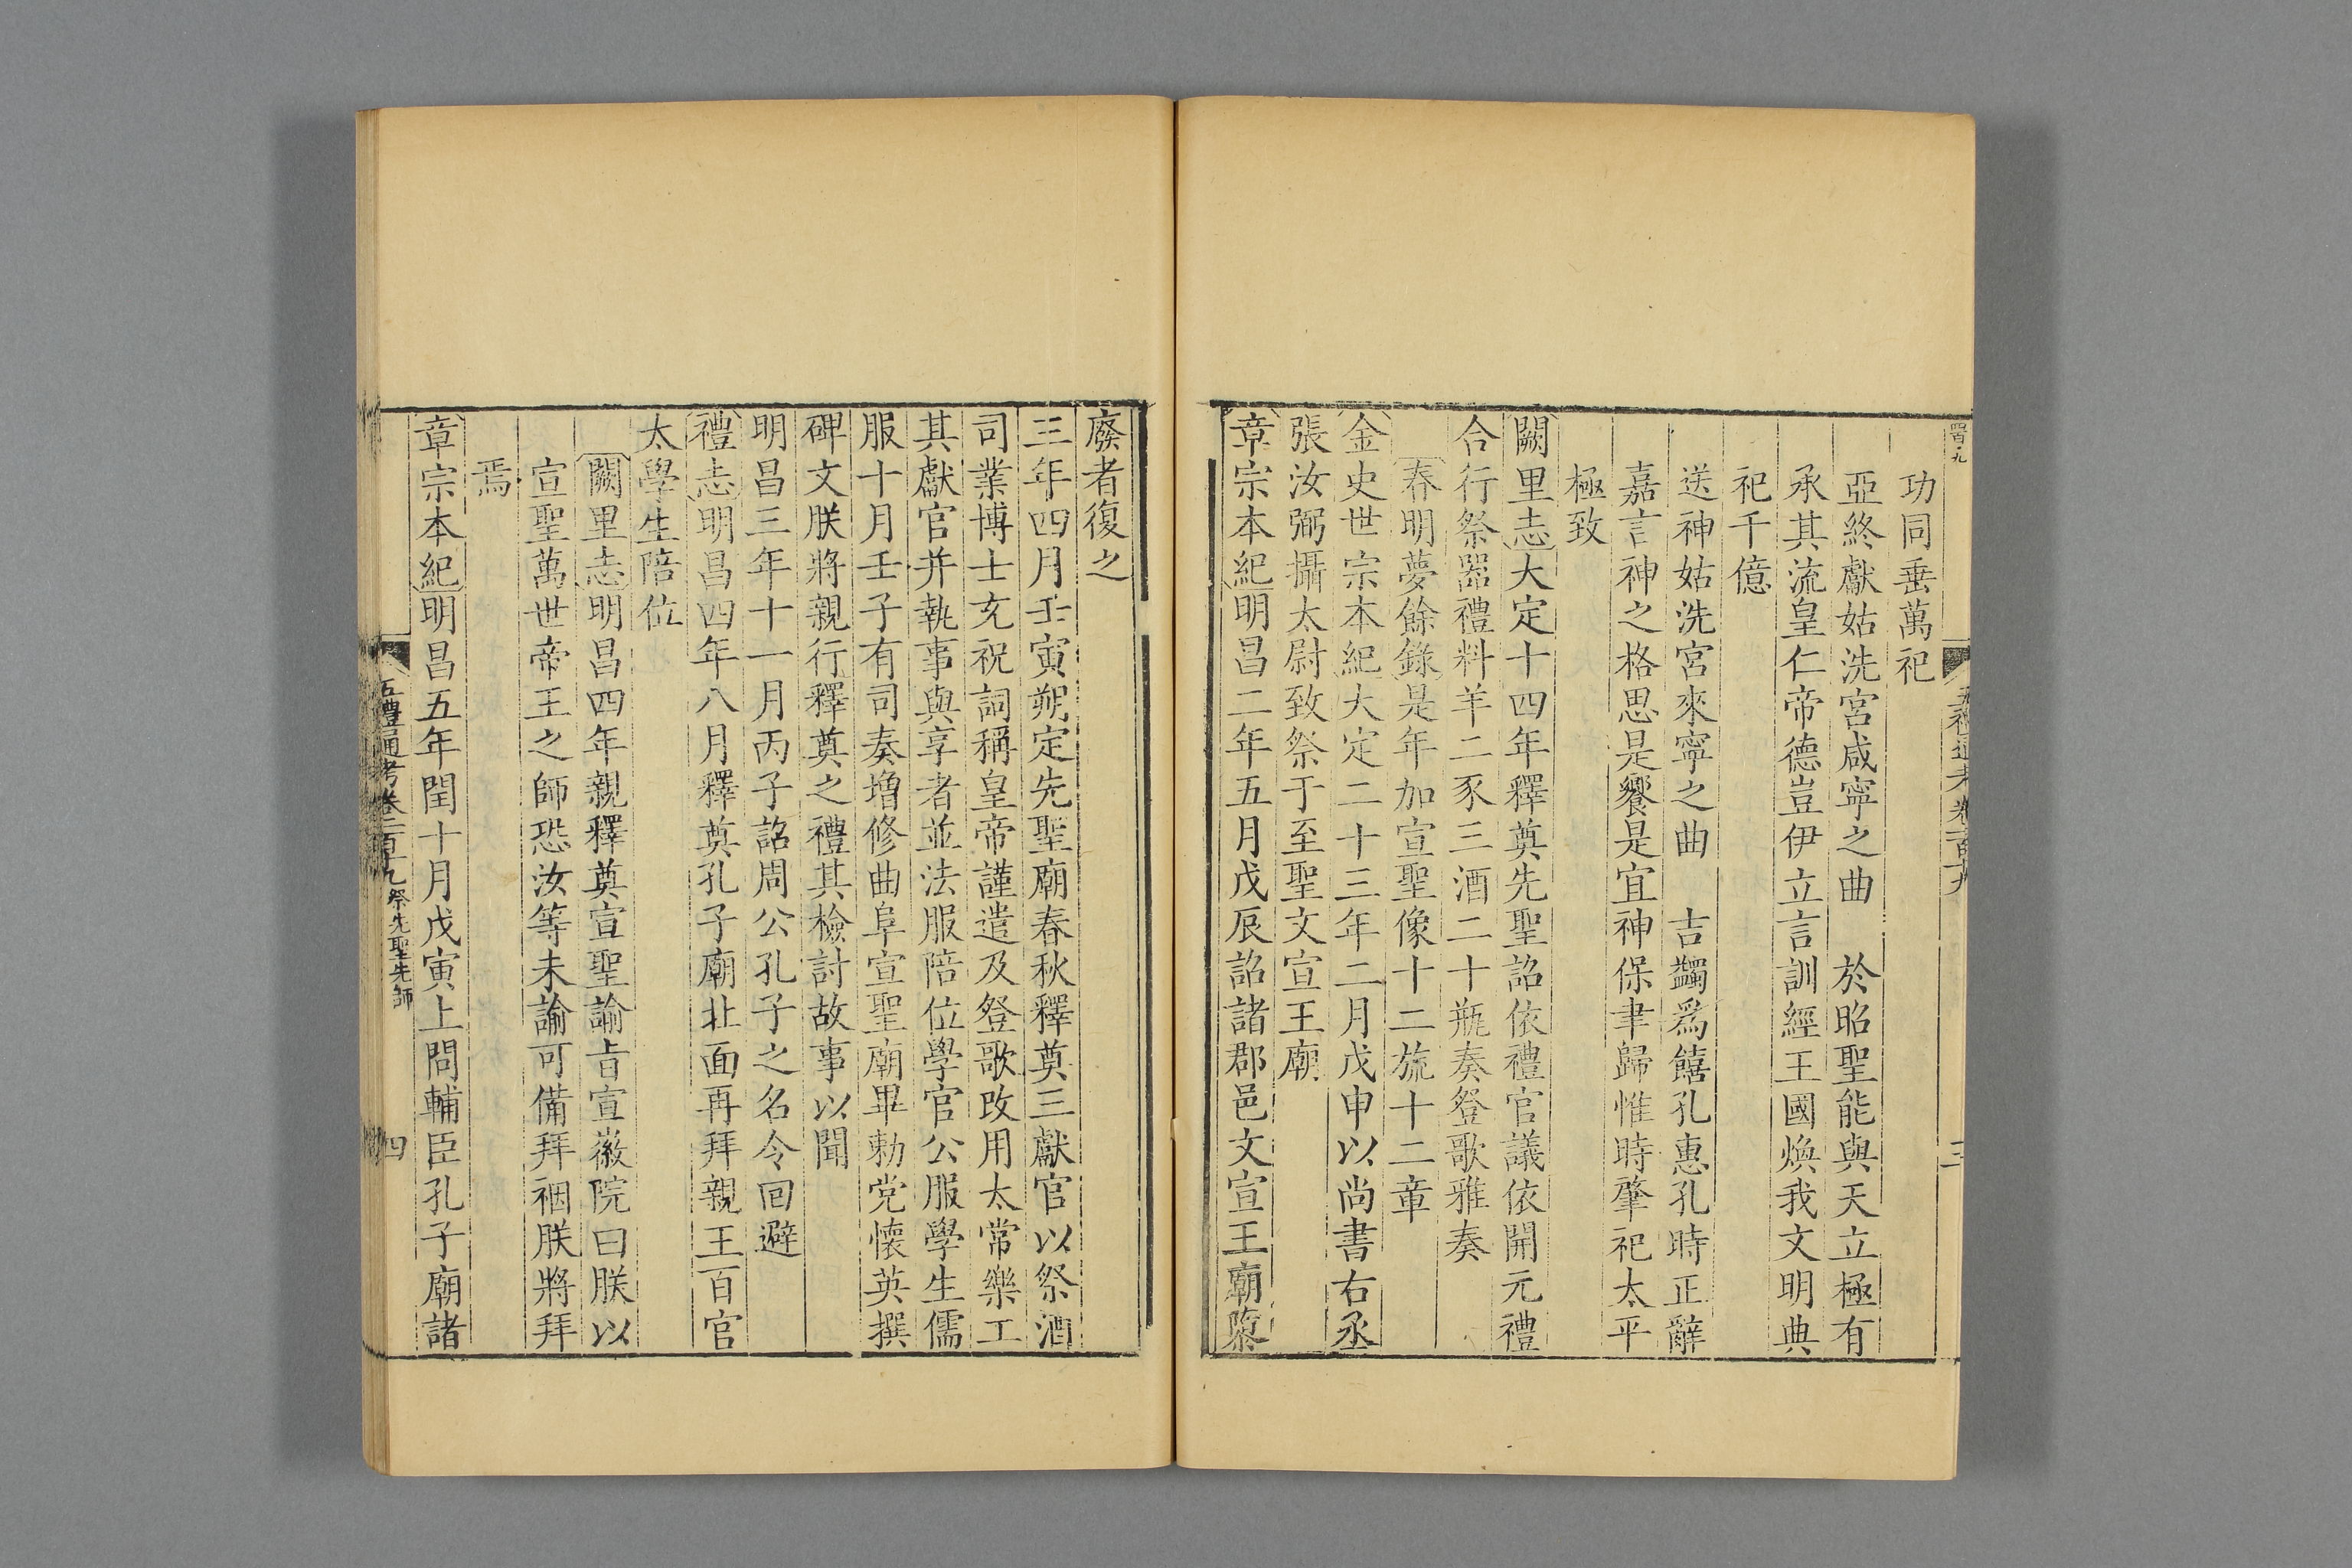 功同垂萬祀
亞終獻姑洗宮咸寧之曲　於昭聖能與天立極有
承其流皇仁帝德豈伊立言訓經王國煥我文明典
祀千億
送神姑洗宮來寧之曲　吉蠲爲饎孔惠孔時正辭
嘉言神之格思是饗是宜神保聿歸惟時肇祀太平
極致
闕里志大定十四年釋奠先聖詔依禮官議依開元禮
合行祭器禮料羊二豕三酒二十瓶奏登歌雅奏
春明夢餘錄是年加宣聖像十二旒十二章
金史世宗本紀大定二十三年二月戊申以尚書右丞
張汝弼攝太尉致祭于至聖文宣王廟
章宗本紀明昌二年五月戊辰詔諸郡邑文宣王廟隳
廢者復之
三年四月壬寅朔定先聖廟春秋釋奠三獻官以祭酒
司業博士充祝詞稱皇帝謹遣及登歌改用太常樂工
其獻官并執事與享者並法服陪位學官公服學生儒
服十月壬子有司奏增修曲阜宣聖廟畢勅党懷英撰
碑文朕將親行釋奠之禮其檢討故事以聞
明昌三年十一月丙子詔周公孔子之名令回避
禮志明昌四年八月釋奠孔子廟北面再拜親王百官
太學生陪位
闕里志明昌四年親釋奠宣聖諭旨宣徽院曰朕以
宣聖萬世帝王之師恐汝等未諭可備拜裀朕將拜
焉
章宗本紀明昌五年閏十月戊寅上問輔臣孔子廟諸
五禮通考卷一百十九 祭先聖先師
四